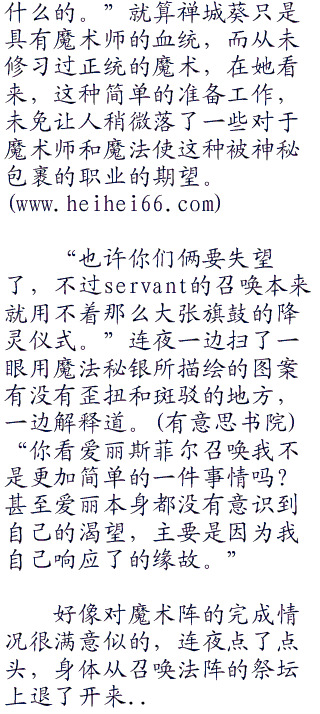 什么的。”就算禅城葵只是
具有魔术师的血统，而从未
修习过正统的魔术，在她看
来，这种简单的准备工作，
未免让人稍微落了一些对于
魔术师和魔法使这种被神秘
包裹的职业的期望。
(www.heihei66.com)
“也许你们俩要失望
了，不过servant的召唤本来
就用不着那么大张旗鼓的降
灵仪式。”连夜一边扫了一
眼用魔法秘银所描绘的图案
有没有歪扭和斑驳的地方，
一边解释道。(有意思书院)
“你看爱丽斯菲尔召唤我不
是更加简单的一件事情吗？
甚至爱丽本身都没有意识到
自己的渴望，主要是因为我
自己响应了的缘故。”
好像对魔术阵的完成情
况很满意似的，连夜点了点
头，身体从召唤法阵的祭坛
上退了开来..